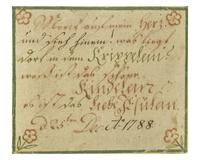 Merck auf mein Herz
und sieh hinein: was liegt
dort in dem Krippelein
ist das schöne
Kindlein
es ist das liebe Jesulein
D 25 Dec A 1788